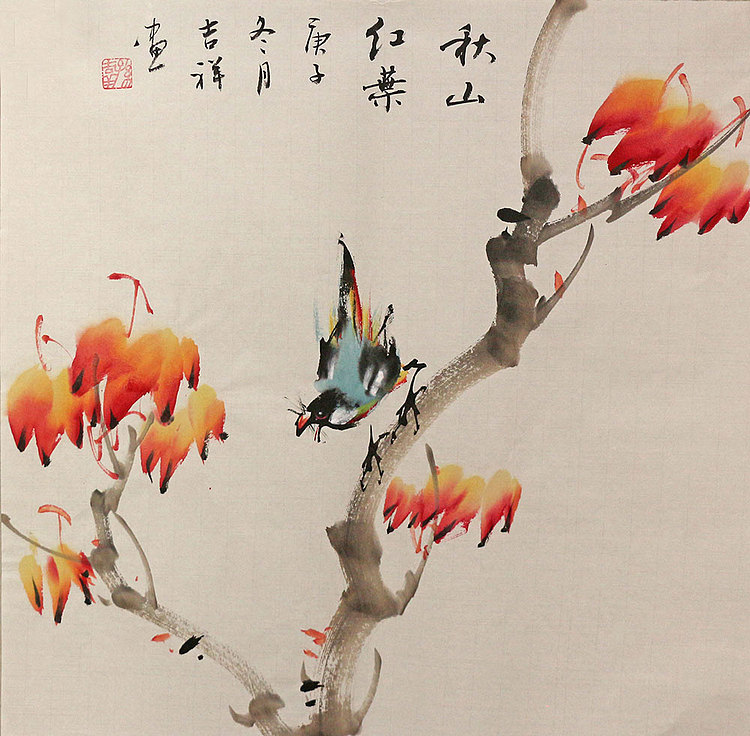 秋山
红葉
庚子
冬月
吉祥
画